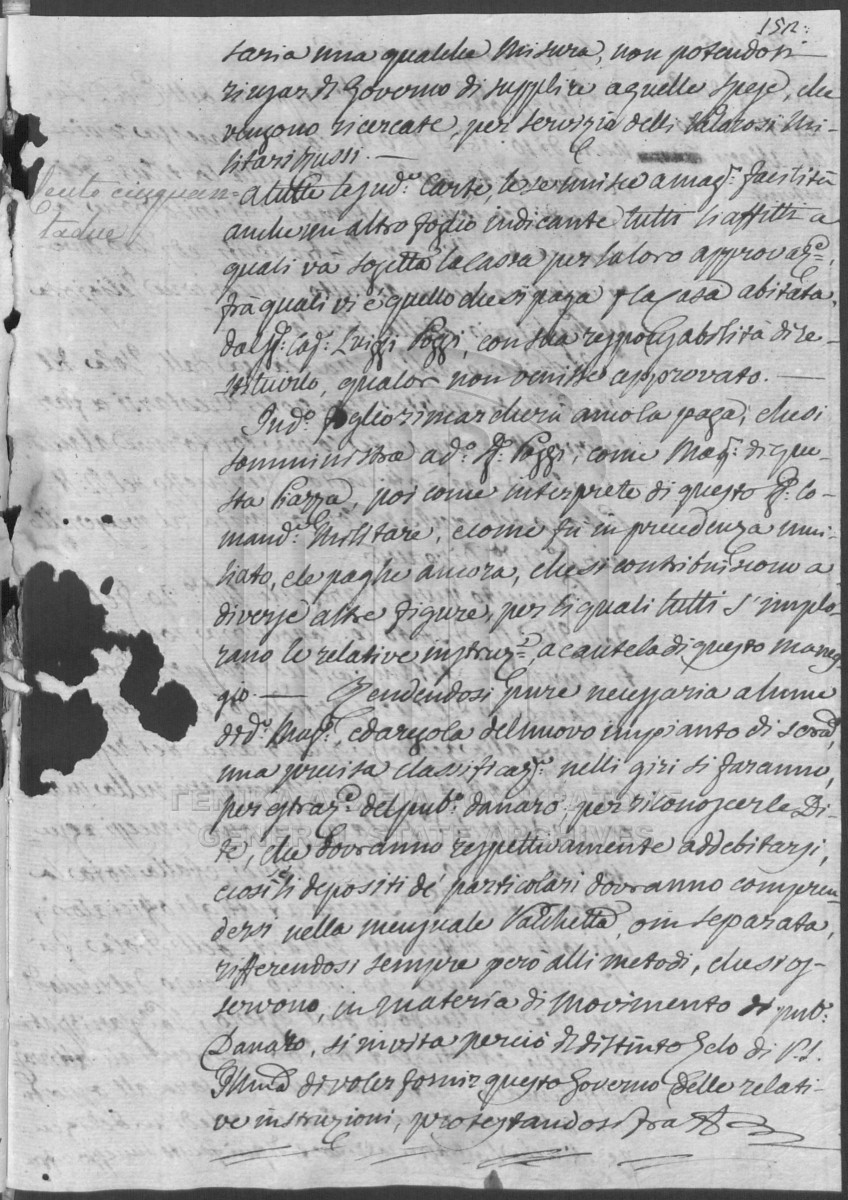 152:
saria una qualche misura, non potendosi
ricusar il Governo di supplire a quelle spese, che
vengono ricercate, per servizio delli Valorosi Mi-
litari Russi. —
Cento cinquan=
tadue
A tutte le sud.e Carte, le se unisce a mag.r facilità
anche un altro foglio indicante tutti li affitti a
quali và sogetta la cassa per la loro approvaz.e,
frà quali vi è quello che si paga p la Casa abitata
dal S.r Cap.o Luiggi Poggi, con sua responsabilità di re-
stituirlo, qualor non venisse approvato. —
In d.o foglio rimarcherà ancora la paga, che si
somministra a d.o S.r Poggi, come Mag.r di que-
sta Piazza, poi come interprete di questo S.r Co-
mand.e Militare, e come fù in precedenza umi-
liato, e le paghe ancora, che si contribuiscono a
diverse altre figure, per li quali tutti s'implo-
rano le relative instruz.e, a cautela di questo maneg-
gio. — Rendendosi pure necessaria a lume
di d.o Mag.o, ed a regola del nuovo impianto di scrit.a,
una precisa classificaz.e nelli giri si faranno,
per estraz.e del pub.o danaro, per riconoscer le Di-
te, che dovranno respettivamente addebitarsi,
e così li depositi de' particolari dovranno compren-
dersi nella mensuale Vacchetta, o in separata,
rifferendosi sempre però alli metodi, che si os-
servono, in materia di movimento di pub.o
Danaro, si invita perciò il distinto zelo di V.S.
Ill.ma di voler fornir questo Governo delle relati-
ve instruzioni, protestandosi frà
ΓΕΝΙΚΑ ΑΡΧΕΙΑ ΤΟΥ ΚΡΑΤΟΥΣ
GENERAL STATE ARCHIVES